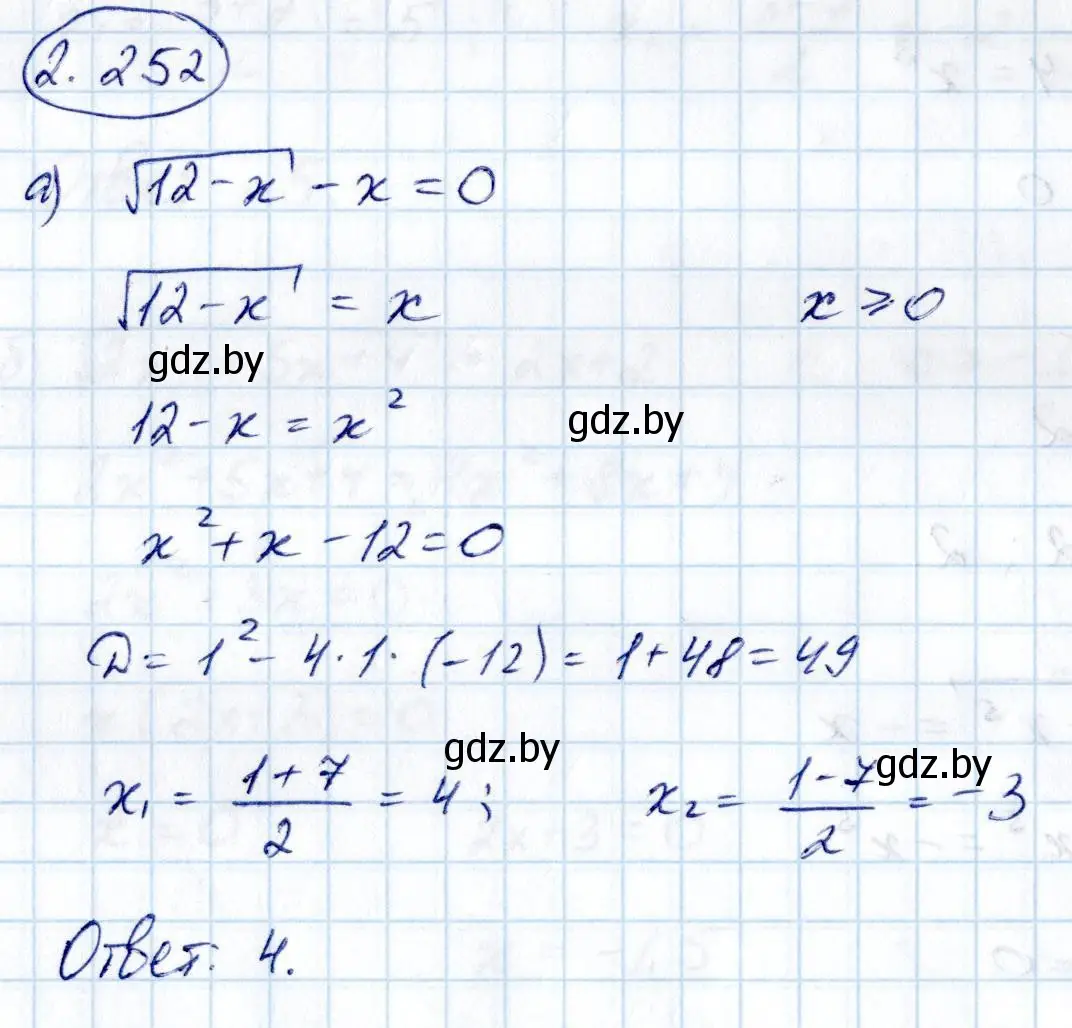 2. 252
а) √12-x - x = 0
√12-x = x x ≥ 0
gdz.by
12 - x = x²
gdz.by
x² + x - 12 = 0
D = 1² - 4·1·(-12) = 1 + 48 = 49
gdz.by
gdz.by
x₁ = (1+7)/2 = 4; x₂ = (1-7)/2 = -3
Ответ: 4.